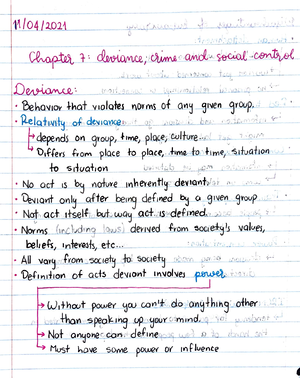 11/04/2021
Chapter 7: deviance, crime and social control
Deviance:
• Behavior that violates norms of any given group.
• Relativity of deviance
→ depends on group, time, place, culture
→ Differs from place to place, time to time, situation
to situation
• No act is by nature inherently deviant.
• Deviant only after being defined by a given group
• Not act itself but way act is defined.
• Norms (including laws) derived from society's values,
beliefs, interests, etc...
• All vary from society to society
• Definition of acts deviant involves power
→ Without power you can't do anything other
than speaking up your mind.
→ Not anyone can define
→ Must have some power or influence